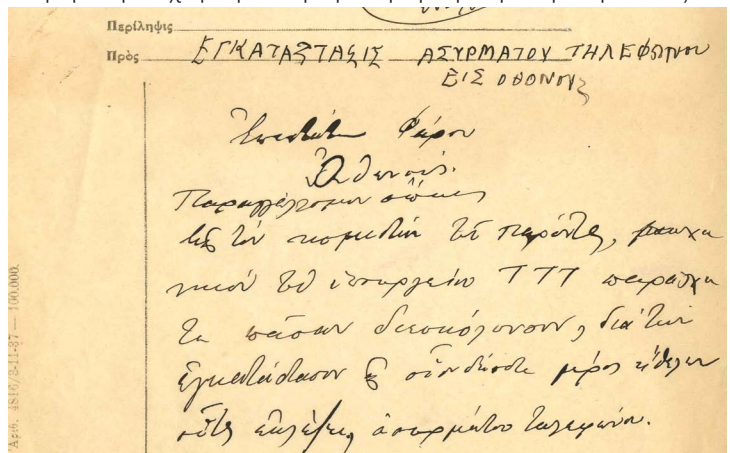 Περίληψις
Πρός ΕΓΚΑΤΑΣΤΑΣΙΣ ΑΣΥΡΜΑΤΟΥ ΤΗΛΕΦΩΝΟΥ
ΕΙΣ ΟΘΟΝΟΥΣ
Ἐπιστάτην Φάρου
Ὀθωνούς.
Παραγγέλλομεν ὅπως
εἰς τὸν κομιστὴν τοῦ παρόντος, μηχα
νικὸν τοῦ ὑπουργείου ΤΤΤ παράσχη
τε πᾶσαν διευκόλυνσιν, διὰ τὴν
ἐγκατάστασιν εἰς οἱονδήποτε μέρος ἤθελεν
οὗτος ἐκλέξει, ἀσυρμάτου τηλεφώνου.
Ἀριθ. 4816/3-11-37 — 100.000.